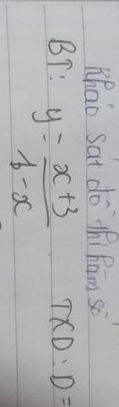 Khảo sát đồ thị hàm số
BT: y = x+3 / 1-x TXD: D =